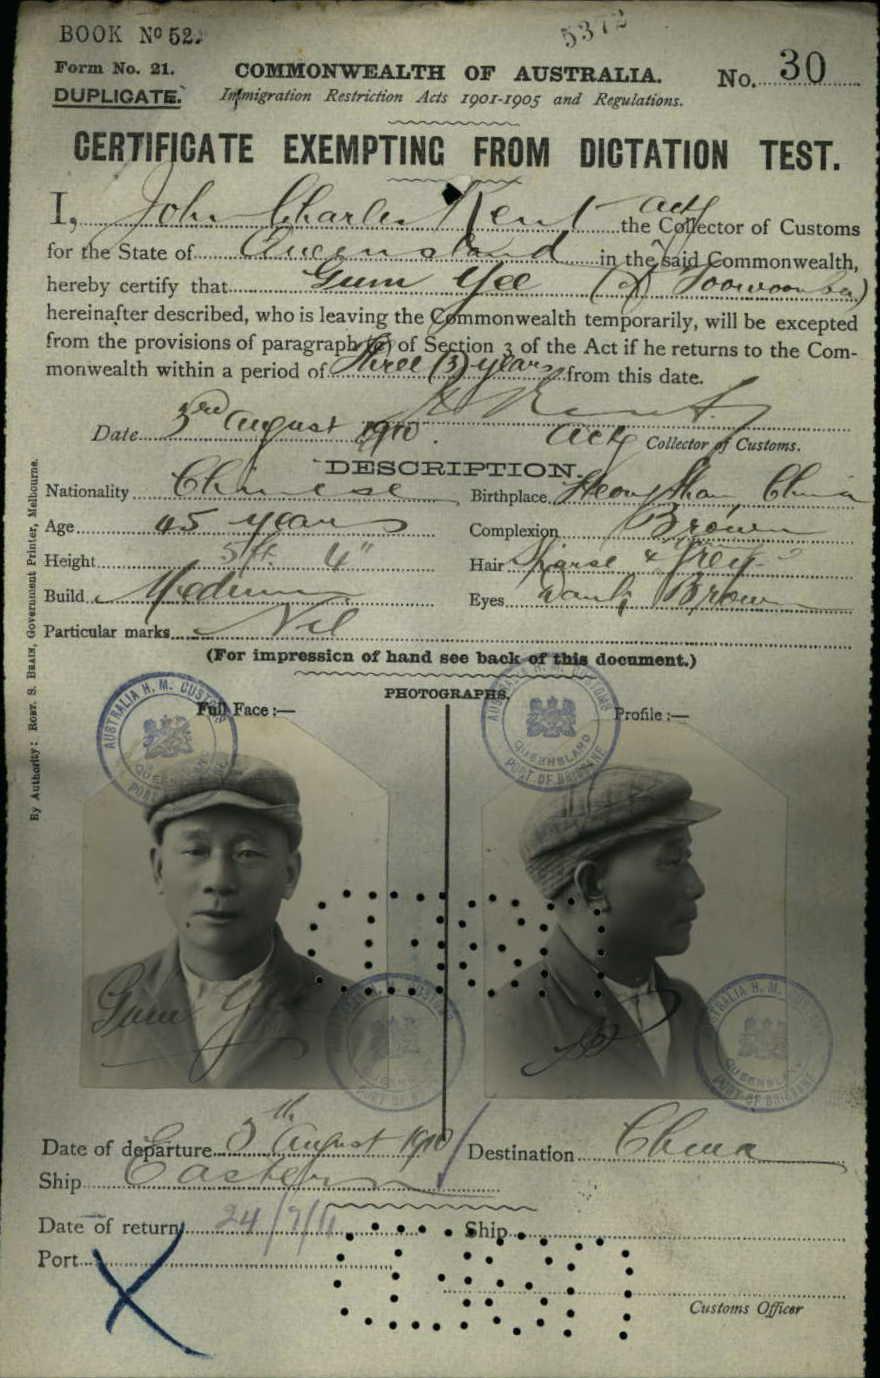 BOOK Nº 52.
5372
Form No. 21.
COMMONWEALTH OF AUSTRALIA.
No. 30
DUPLICATE.
Immigration Restriction Acts 1901-1905 and Regulations.
CERTIFICATE EXEMPTING FROM DICTATION TEST.
I, John Charles Kent actg the Collector of Customs
for the State of Queensland in the said Commonwealth,
hereby certify that Gum Yee (of Toowoomba)
hereinafter described, who is leaving the Commonwealth temporarily, will be excepted
from the provisions of paragraph of Section 3 of the Act if he returns to the Com-
monwealth within a period of Three (3) years from this date.
Date 3rd August 1910. J C Kent
Actg Collector of Customs.
DESCRIPTION.
Nationality Chinese
Birthplace Heong Shan China
Age 45 years
Complexion Brown
Height 5 ft. 4"
Hair Sparse & Grey
Build Medium
Eyes Dark Brown
Particular marks Nil
(For impression of hand see back of this document.)
PHOTOGRAPHS.
Full Face :—
Profile :—
AUSTRALIA H. M. CUSTOMS QUEENSLAND PORT OF BRISBANE
AUSTRALIA H. M. CUSTOMS QUEENSLAND PORT OF BRISBANE
Gum Yee
AUSTRALIA H. M. CUSTOMS QUEENSLAND PORT OF BRISBANE
AUSTRALIA H. M. CUSTOMS QUEENSLAND PORT OF BRISBANE
Date of departure 5th August 1910
Destination China
Ship Eastern
Date of return 24/7/11
Ship
Port
Customs Officer
By Authority: ROBT. S. BRAIN, Government Printer, Melbourne.